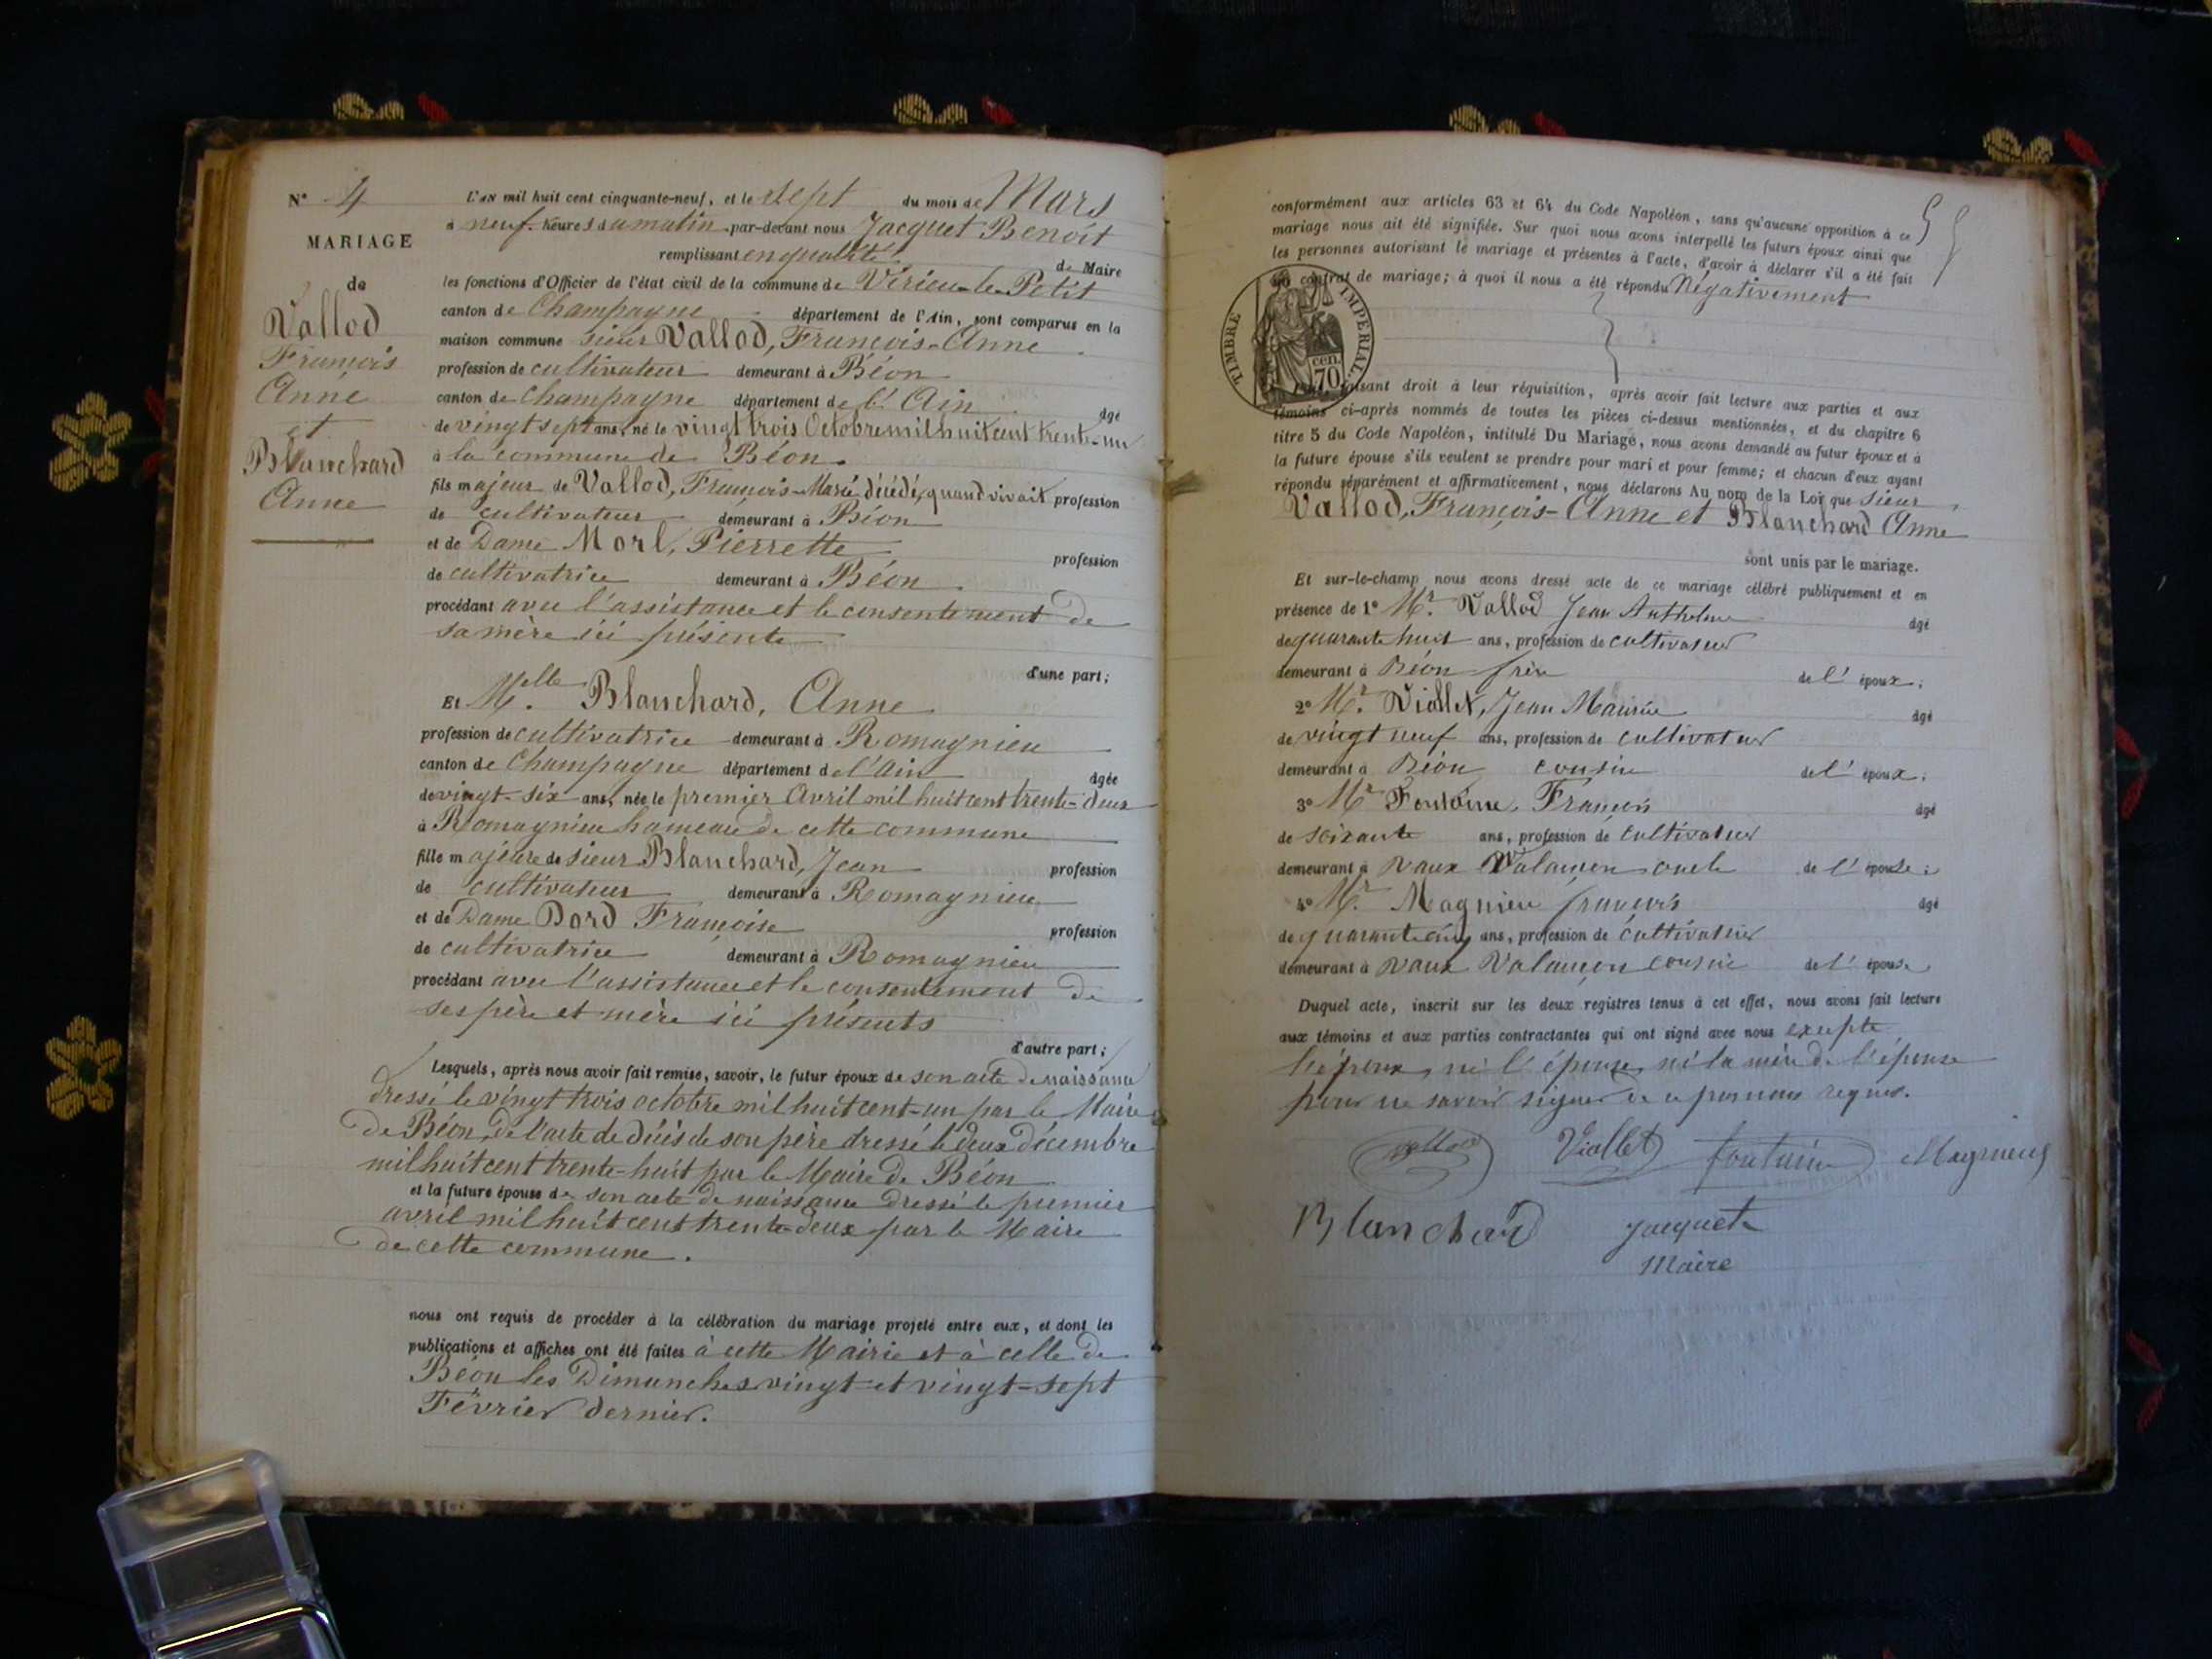 N° 4
MARIAGE
de
Vallod
François
Anne
et
Blanchard
Anne
L'AN mil huit cent cinquante-neuf, et le sept du mois de Mars
à neuf heures du matin par-devant nous Jacquet Benoît
remplissant en qualité de Maire
les fonctions d'Officier de l'état civil de la commune de Virieu-le-Petit
canton de Champagne département de l'Ain, sont comparus en la
maison commune sieur Vallod, François-Anne
profession de cultivateur demeurant à Béon
canton de Champagne département de l'Ain âgé
de vingt sept ans, né le vingt trois Octobre mil huit cent trente-un
à la commune de Béon.
fils majeur de Vallod, François-Marie décédé, quand vivait profession
de cultivateur demeurant à Béon
et de Dame Morl, Pierrette profession
de cultivatrice demeurant à Béon
procédant avec l'assistance et le consentement de
sa mère ici présente
d'une part;
Et Melle Blanchard, Anne
profession de cultivatrice demeurant à Romagnieu
canton de Champagne département de l'Ain âgée
de vingt-six ans, née le premier Avril mil huit cent trente-deux
à Romagnieu hameau de cette commune
fille majeure de sieur Blanchard, Jean profession
de cultivateur demeurant à Romagnieu
et de Dame Dord Françoise profession
de cultivatrice demeurant à Romagnieu
procédant avec l'assistance et le consentement de
ses père et mère ici présents
d'autre part;
Lesquels, après nous avoir fait remise, savoir, le futur époux de son acte de naissance
dressé le vingt trois octobre mil huit cent-un par le Maire
de Béon, de l'acte de décès de son père dressé le deux décembre
mil huit cent trente-huit par le Maire de Béon
et la future épouse de son acte de naissance dressé le premier
avril mil huit cent trente-deux par le Maire
de cette commune.
nous ont requis de procéder à la célébration du mariage projeté entre eux, et dont les
publications et affiches ont été faites à cette Mairie et à celle de
Béon les Dimanches vingt et vingt-sept
Février dernier.
conformément aux articles 63 et 64 du Code Napoléon, sans qu'aucune opposition à ce
mariage nous ait été signifiée. Sur quoi nous avons interpellé les futurs époux ainsi que
les personnes autorisant le mariage et présentes à l'acte, d'avoir à déclarer s'il a été fait
contrat de mariage; à quoi il nous a été répondu Négativement
TIMBRE IMPERIAL
70 cen.
faisant droit à leur réquisition, après avoir fait lecture aux parties et aux
témoins ci-après nommés de toutes les pièces ci-dessus mentionnées, et du chapitre 6
titre 5 du Code Napoléon, intitulé Du Mariage, nous avons demandé au futur époux et à
la future épouse s'ils veulent se prendre pour mari et pour femme; et chacun d'eux ayant
répondu séparément et affirmativement, nous déclarons Au nom de la Loi que sieur
Vallod, François-Anne et Blanchard Anne
sont unis par le mariage.
Et sur-le-champ nous avons dressé acte de ce mariage célébré publiquement et en
présence de 1° Mr. Vallod Jean Anthelme âgé
de quarante huit ans, profession de cultivateur
demeurant à Béon frère de l'époux;
2° Mr. Viallet, Jean Maurice âgé
de vingt neuf ans, profession de cultivateur
demeurant à Béon cousin de l'époux;
3° Mr Fontaine, François âgé
de soixante ans, profession de cultivateur
demeurant à Vaux Valançon oncle de l'épouse;
4° Mr. Magnieu françois âgé
de quarante cinq ans, profession de cultivateur
demeurant à Vaux Valançon cousin de l'épouse
Duquel acte, inscrit sur les deux registres tenus à cet effet, nous avons fait lecture
aux témoins et aux parties contractantes qui ont signé avec nous excepté
l'époux, ni l'épouse, ni la mère de l'épouse
pour ne savoir signer de ce par nous requis.
Vallod Viallet fontaine Magnieu
Blanchard Jacquet
Maire